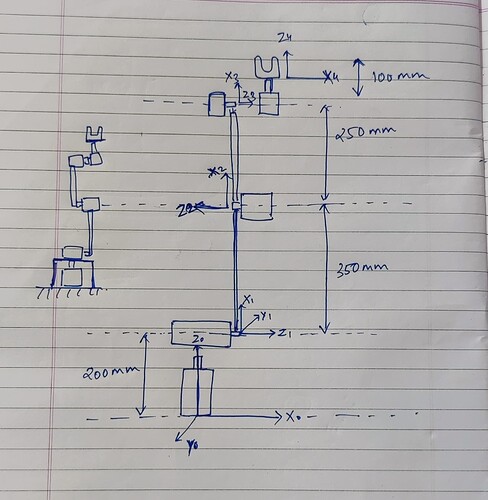 Z4
X4
100mm
X3
Z3
250mm
X2
350mm
X1
Y1
Z1
Z0
200mm
X0
Y0